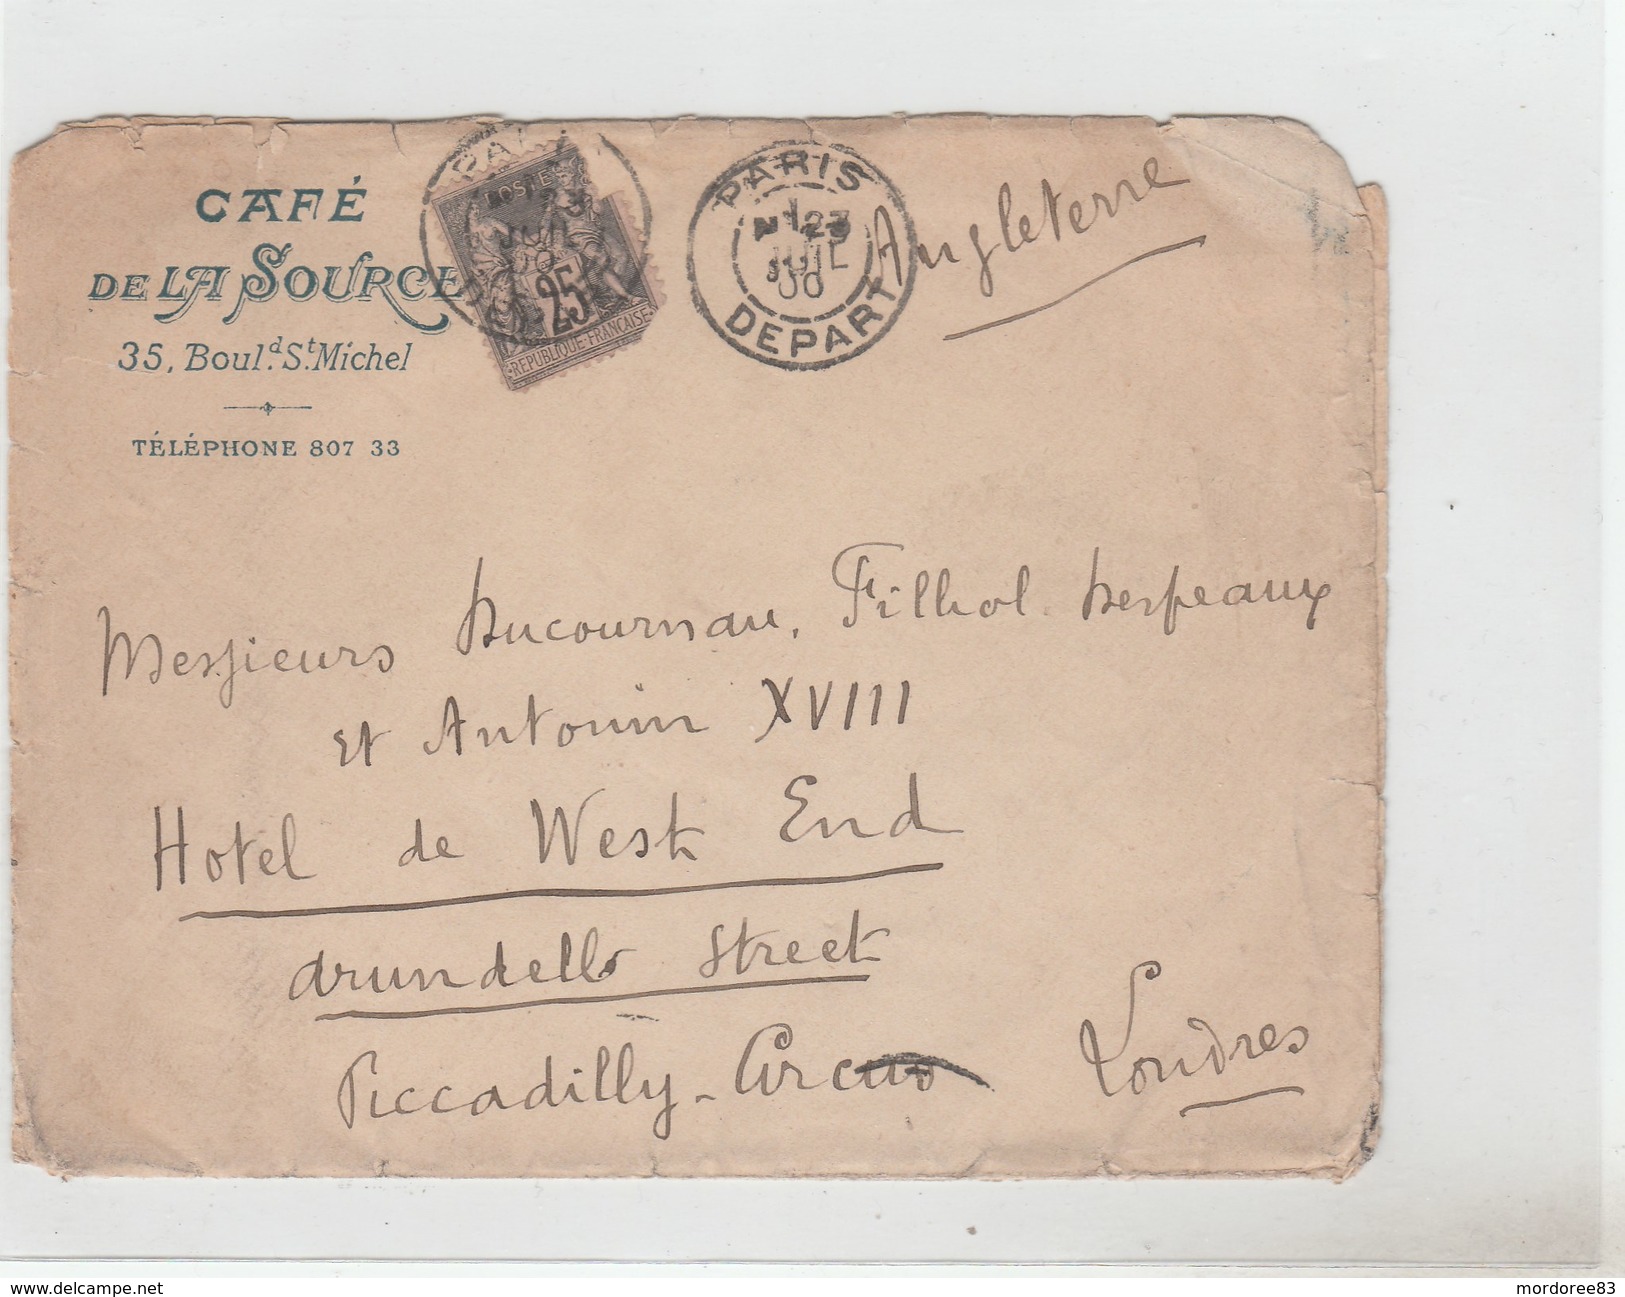 CAFÉ
DE LA SOURCE
35, Boul.d S.t Michel
TÉLÉPHONE 807 33
POSTES
25
REPUBLIQUE FRANÇAISE
PARIS
23
JUIL
00
DEPART
Angleterre
Messieurs Ducournau, Filhol Despeaux
et Antonin XVIII
Hotel de West End
Arundells Street
Piccadilly-Circus Londres
www.delcampe.net
mordoree83